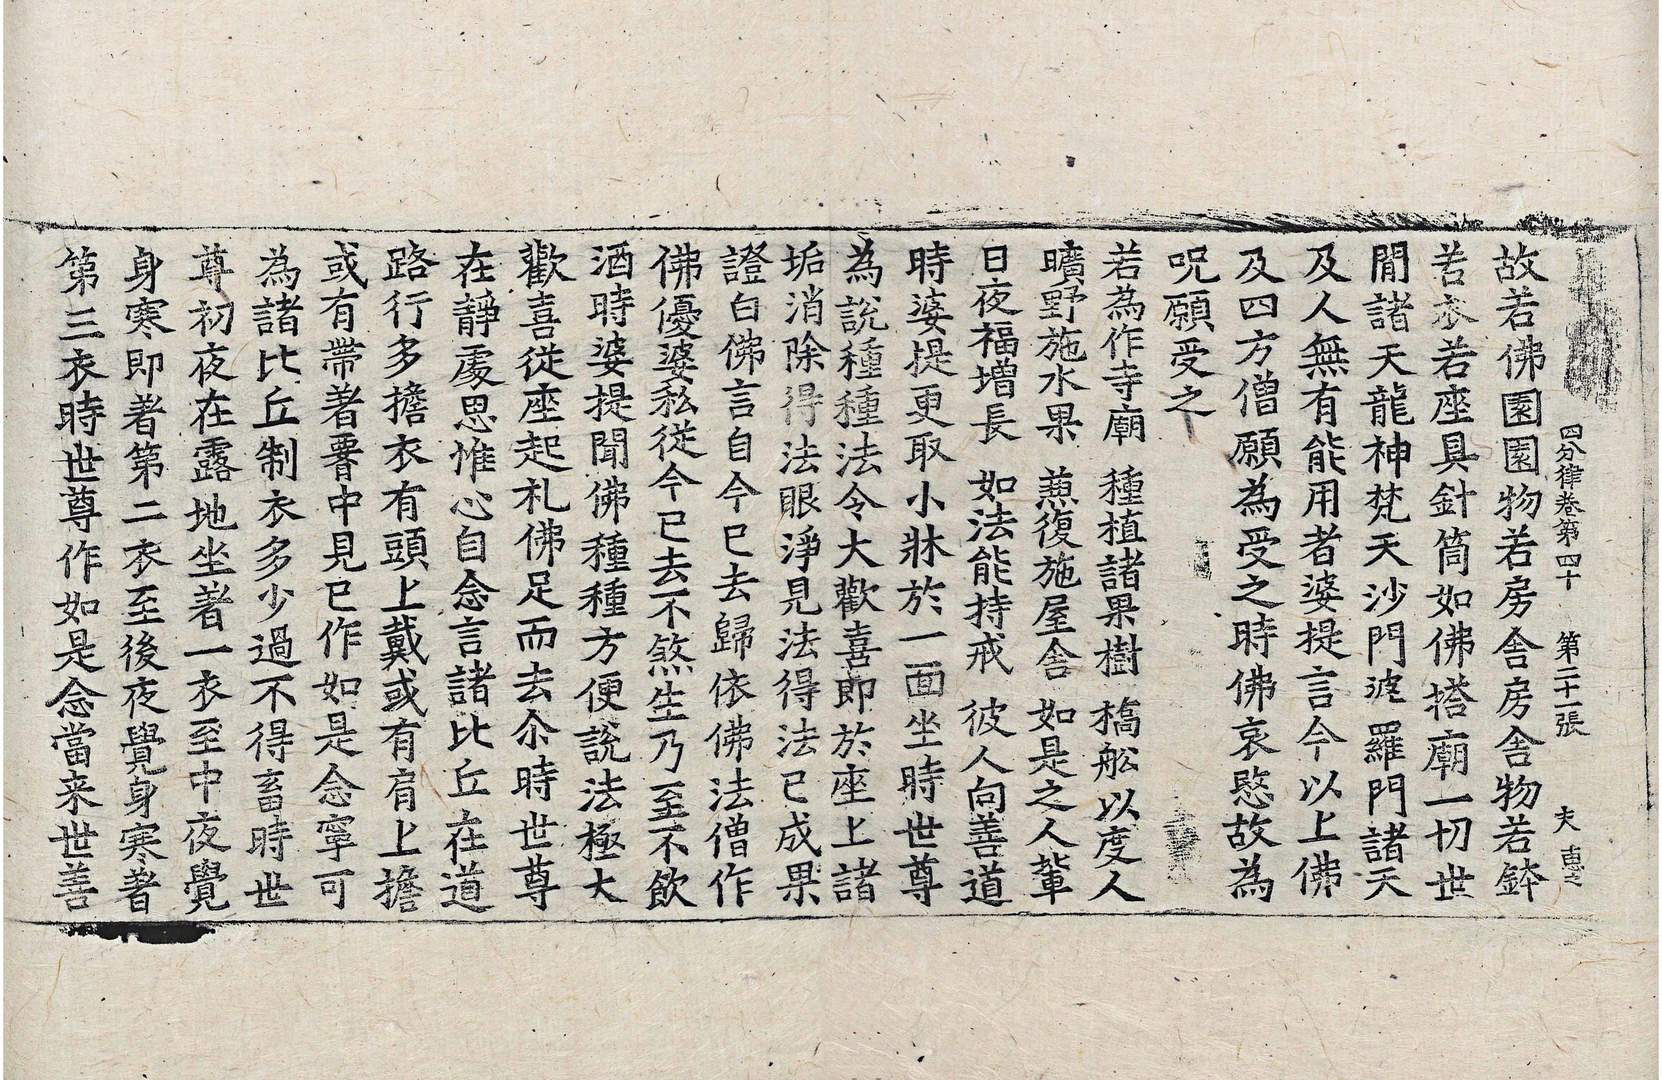 四分律卷第四十 第二十一張 夫 惠之
故若佛園園物若房舍房舍物若鉢
若衣若座具針筒如佛塔廟一切世
閒諸天龍神梵天沙門婆羅門諸天
及人無有能用者婆提言今以上佛
及四方僧願為受之時佛哀愍故為
呪願受之
若為作寺廟 種植諸果樹 橋舩以度人
曠野施水果 兼復施屋舍 如是之人輩
日夜福增長 如法能持戒 彼人向善道
時婆提更取小牀於一面坐時世尊
為說種種法令大歡喜即於座上諸
垢消除得法眼淨見法得法已成果
證白佛言自今已去歸依佛法僧作
佛優婆私從今已去不煞生乃至不飲
酒時婆提聞佛種種方便說法極大
歡喜從座起礼佛足而去尒時世尊
在靜處思惟心自念言諸比丘在道
路行多擔衣有頭上戴或有肩上擔
或有帶著𦝫中見已作如是念寧可
為諸比丘制衣多少過不得畜時世
尊初夜在露地坐著一衣至中夜覺
身寒即著第二衣至後夜覺身寒著
第三衣時世尊作如是念當来世善